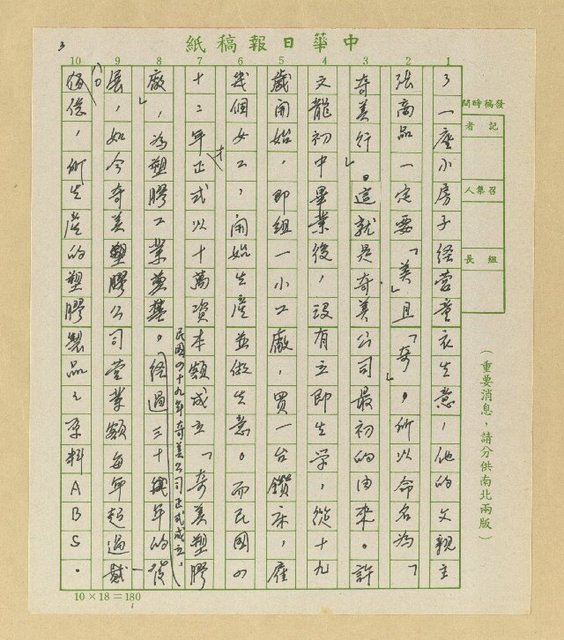 中華日報稿紙
3
1
2
3
4
5
6
7
8
9
10
發稿時間
記者
召集人
組長
(重要消息，請分供南北兩版)
了一座小房子經營童衣生意，他的父親主
張商品一定要「美」且「奇」。所以命名為「
奇美行」。這就是奇美公司最初的由來。許
文龍初中畢業後，沒有立即生学，從十九
歲開始，即組一小工廠，買一台鑽床，雇
幾個女工，開始生產並做生意。而民國四
十二年正式以十萬資本額成立「奇美塑膠
廠」，為塑膠工業奠基。經過三十幾年的發
民國四十九年奇美公司正式成立，
展，如今奇美塑膠公司營業額每年超過
億，所生產的塑膠製品之原料ABS。
10×18＝180